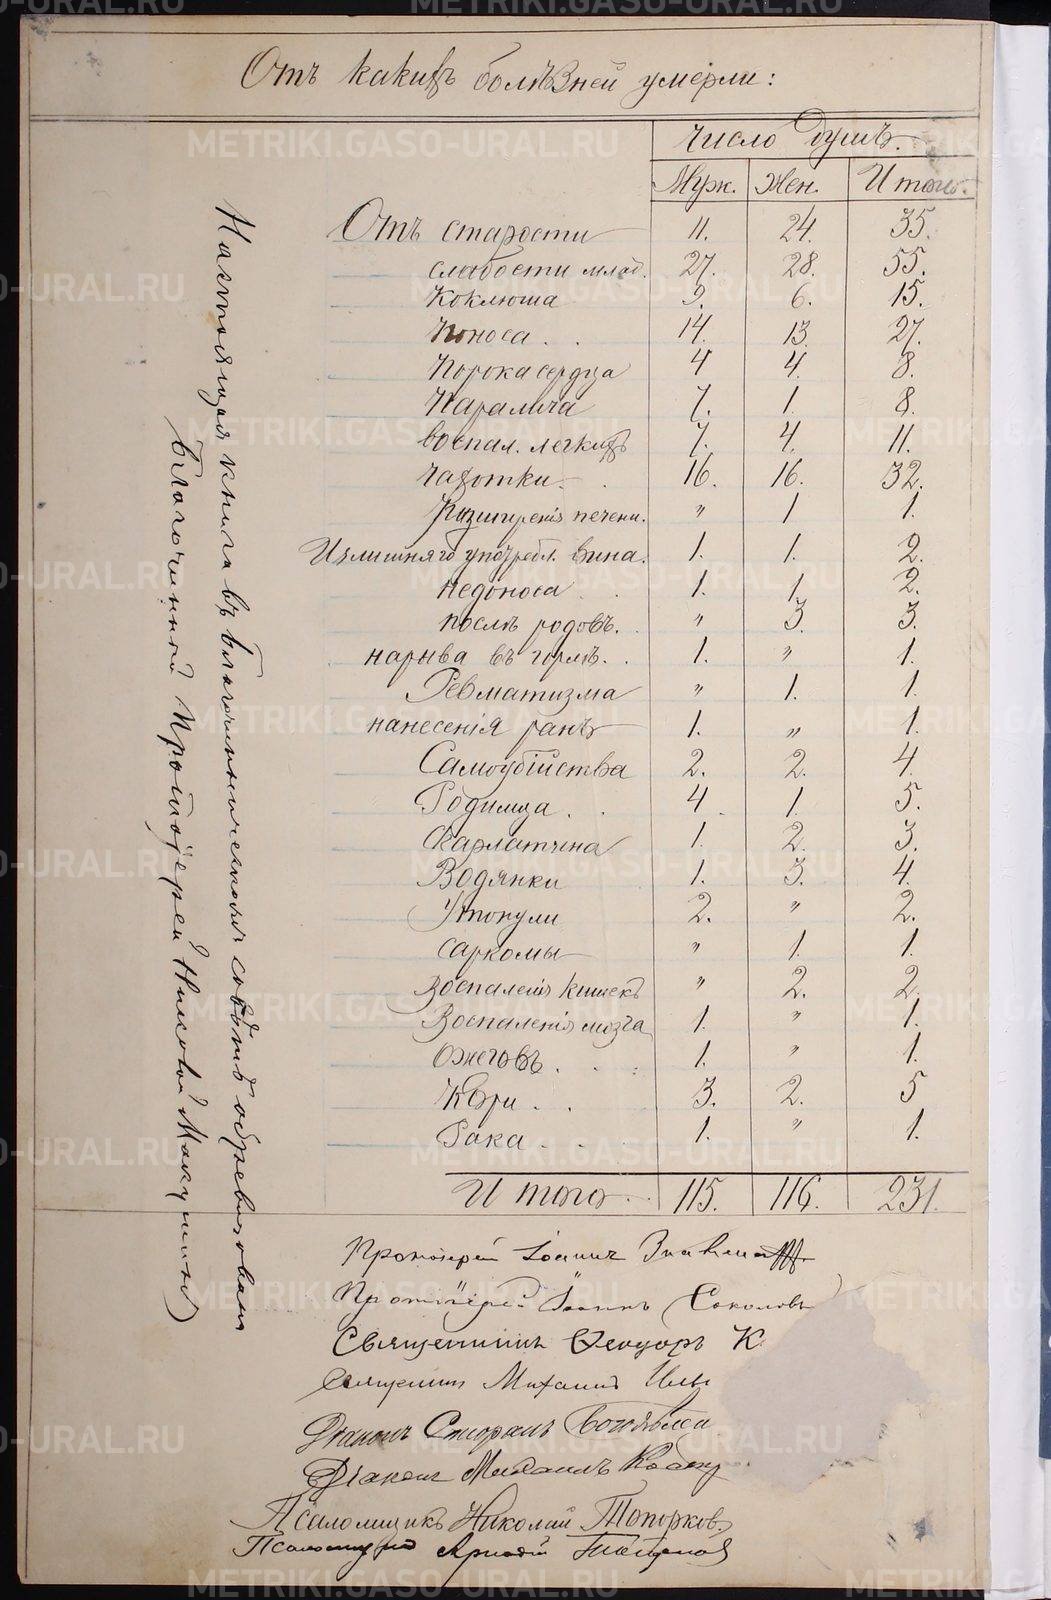 Отъ какихъ болѣзней умерли:
Число душъ.
Муж. Жен. Итого.
Отъ старости 11. 24. 35.
слабости млад. 27. 28. 55.
Коклюша 9. 6. 15.
Поноса . . 14. 13. 27.
Порока сердца 4 4. 8.
Паралича 7. 1. 8.
воспал. легкихъ 7. 4. 11.
чахотки . 16. 16. 32.
Разширенія печени. " 1 1.
Излишняго употребл. вина. 1. 1. 2.
недоноса . . 1. 1. 2.
послѣ родовъ. " 3. 3.
нарыва въ горлѣ. . 1. " 1.
Ревматизма " 1. 1.
нанесенія ранъ 1. " 1.
Самоубійства 2. 2. 4.
Родимца . . 4. 1. 5.
Скарлатина 1. 2. 3.
Водянки 1. 3. 4.
Утонули 2. " 2.
саркомы " 1. 1.
Воспаленія кишекъ " 2. 2.
Воспаленія мозга 1. " 1.
Ожеговъ . . : 1. " 1.
Кори . . 3. 2. 5
Рака . . . 1. " 1.
Итого . . 115. 116. 231.
Настоящая книга въ благочинническомъ совѣтѣ обревизована
Благочинный Протоіерей Николай
Протоіерей Іоаннъ
Протоіерей Іоаннъ Соколовъ
Священникъ Ѳеодоръ К
Священникъ Михаилъ
Діаконъ
Діаконъ Михаилъ
Псаломщикъ Николай Топорковъ.
Псаломщикъ
METRIKI.GASO-URAL.RU